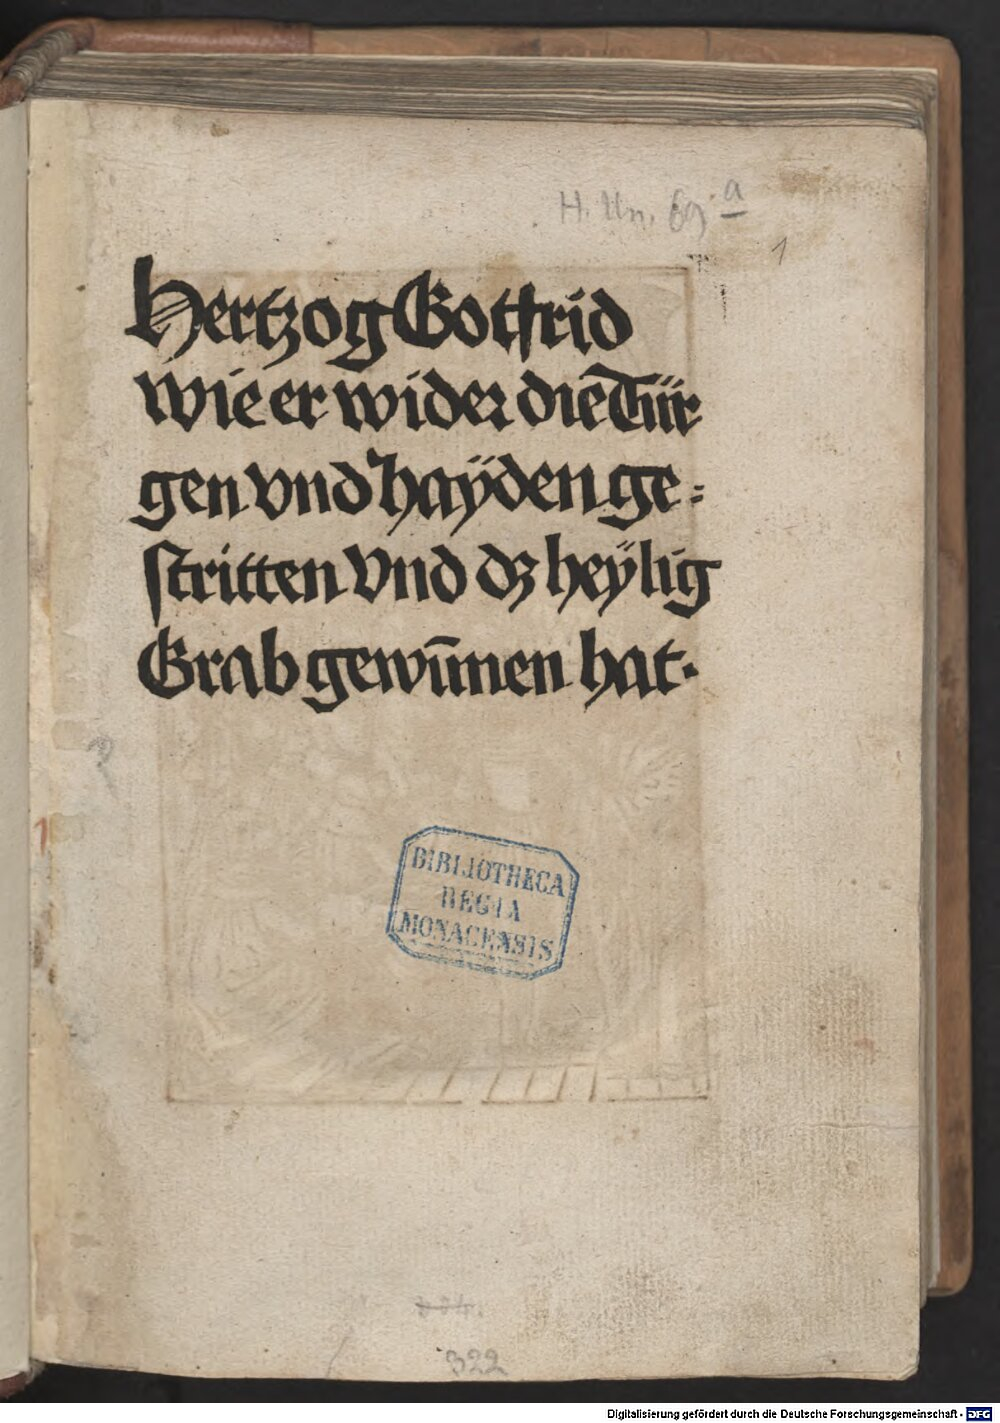 H. Un. 69 a
1
Hertzog Gotfrid
wie er wider die Tür
gen vnd haÿden ge=
ſtritten Vnd dz heÿlig
Grab gewūnen hat.
BIBLIOTHECA
REGIA
MONACENSIS
322
Digitalisierung gefördert durch die Deutsche Forschungsgemeinschaft - DFG